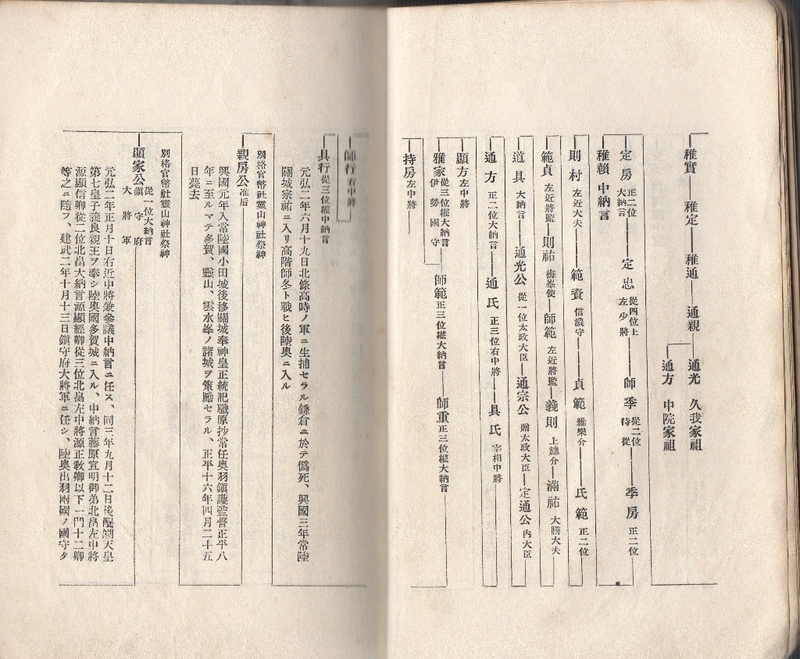 稚實 稚定 稚通 通親 通光 久我家祖
通方 中院家祖
定房 正二位大納言 定忠 從四位上左少將 師季 從二位侍從 季房 正二位
稚賴 中納言
則村 左近大夫 範資 信濃守 貞範 雅樂介 氏範 正二位
範貞 左近將監 則祐 師範 左近將監 義則 上總介 滿祐 大膳大夫
道具 大納言 通光公 從一位太政大臣 通宗公 贈太政大臣 定通公 內大臣
通方 正二位大納言 通氏 正三位右中將 具氏 宰相中將
顯方 左中將
雅家 從三位權大納言伊勢國守 師範 正三位權大納言 師重 正三位權大納言
持房 左中將
師行 右中將
具行 從三位權中納言
元弘二年六月十九日北條高時ノ軍ニ生捕セラル鎌倉ニ於テ僞死、興國三年常陸
關城宗祐ニ入リ高階師冬ト戰ヒ後陸奧ニ入ル
別格官幣社靈山神社祭神
親房公 准后
興國元年入常陸國小田城後移關城奉神皇正統記職原抄常任奥羽鎭護監督正平八
年ニ至ルマテ多賀、靈山、雲水峯ノ諸城ヲ策勵セラル、正平十六年四月二十五
日薨去
別格官幣社靈山神社祭神
顯家公 從一位大納言鎭守府大將軍
元弘二年正月十日右近中將兼參議中納言ニ任ス、同三年九月十二日後醍醐天皇
第七皇子義良親王ヲ奉シ陸奧國多賀城ニ入ル、中納言藤原宣明御弟北畠左中將
源顯信卿從二位北畠大納言源顯經卿從三位北畠左中將源正敎卿以下一門十二卿
等之ニ隨フ、建武二年十月十三日鎭守府大將軍ニ任シ、陸奧出羽兩國ノ國守タ